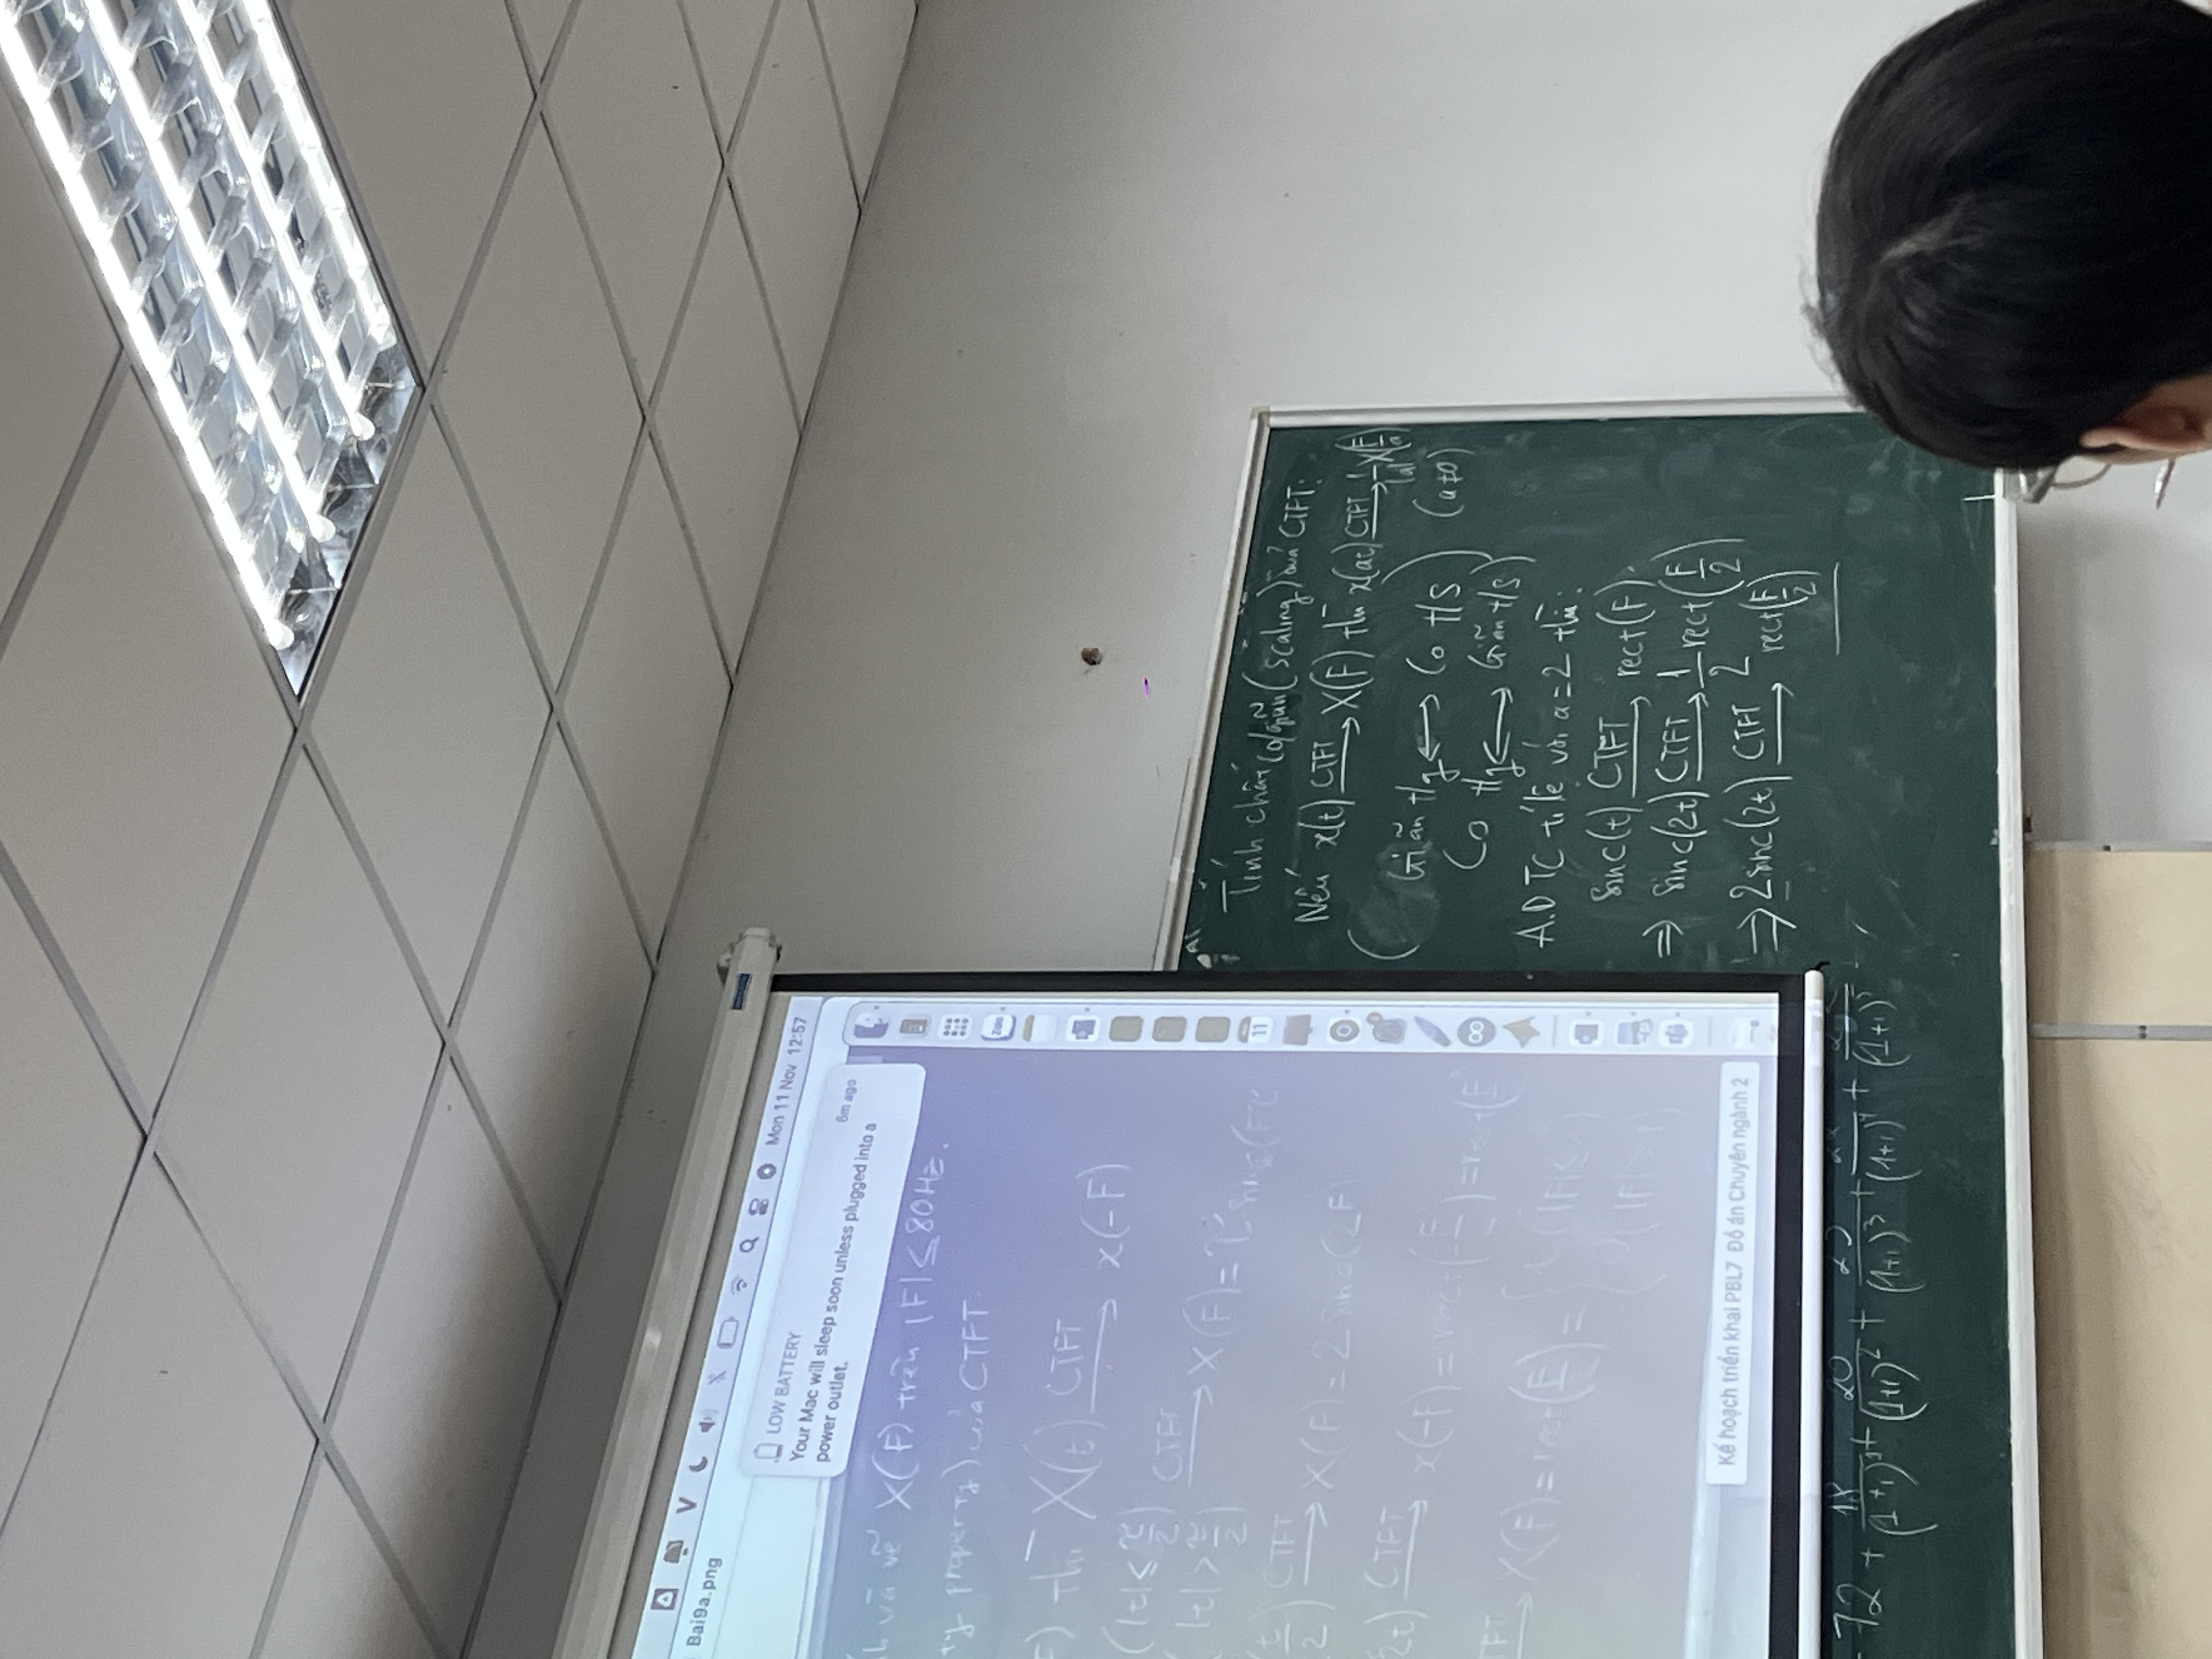 Bai9a.png
Mon 11 Nov 12:57
LOW BATTERY
6m ago
Your Mac will sleep soon unless plugged into a
power outlet.
và vẽ X(F) trên |F| ≤ 80Hz.
ty property) của CTFT:
F) thì X(t) CTFT→ x(-F)
(|t| ≤ τ/2)
CTFT→ X(F) = τ sinc(Fτ
|t| > τ/2)
t/2) CTFT→ X(F) = 2 sinc(2F)
2t) CTFT→ x(-F) = rect(-F/2) = rect(F
→ X(F) = rect(F/2) = { 1 (|F| ≤ 1)
0 (|F| > 1)
Zalo
11
Kế hoạch triển khai PBL7 Đồ án Chuyên ngành 2
Tính chất co/giãn (scaling) của CTFT:
Nếu x(t) CTFT→ X(F) thì x(at) CTFT→ 1/|a| X(F/a)
(Giãn t/g ↔ Co t/s (a≠0)
Co t/g ↔ Giãn t/s)
A.D TC tỉ lệ với a=2 thì:
sinc(t) CTFT→ rect(F).
⇒ sinc(2t) CTFT→ 1/2 rect(F/2)
⇒ 2sinc(2t) CTFT→ rect(F/2)
-72 + 18/(1+i)¹ + 20/(1+i)² + /(1+i)³ + /(1+i)⁴ + /(1+i)⁵